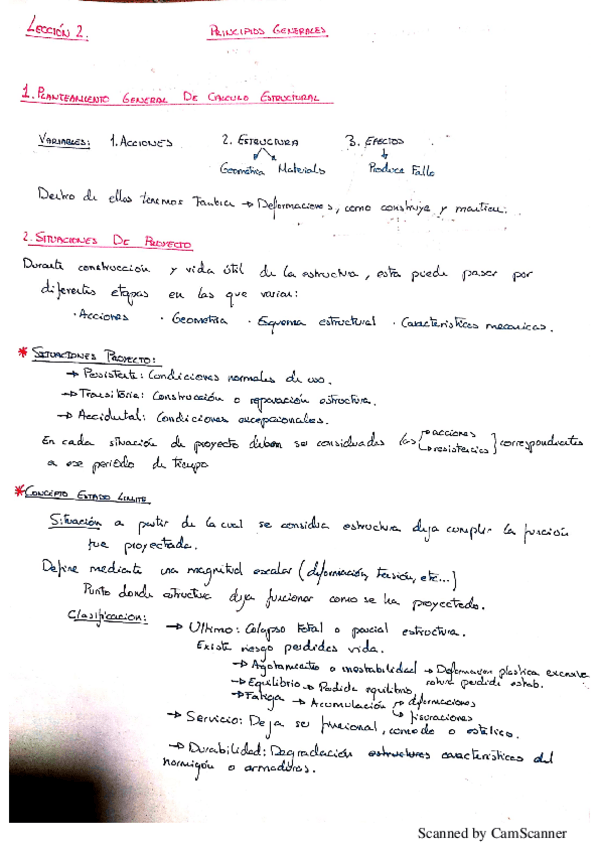 LECCIÓN 2. PRINCIPIOS GENERALES
1. PLANTEAMIENTO GENERAL DE CALCULO ESTRUCTURAL
VARIABLES: 1. ACCIONES 2. ESTRUCTURA 3. EFECTOS
Geometrica Materials Produce Fallo
Dentro de ellas tenemos Tambien → Deformaciones, como construye y mantien.
2. SITUACIONES DE PROYECTO
Durante construcción y vida útil de la estructura, esta puede pasar por
diferentes etapas en las que varian:
· Acciones · Geometria · Esquema estructural · Caracteristicas mecanicas.
* SITUACIONES PROYECTO:
→ Persistente: Condiciones normales de uso.
→ Transitoria: Construcción o reparación estructura.
→ Accidental: Condiciones excepcionales.
En cada situación de proyecto deben ser consideradas las { → acciones → resistencias } correspondientes
a ese periodo de tiempo
* CONCEPTO ESTADO LIMITE
Situación a partir de la cual se considera estructura deja cumplir la función
fue proyectada.
Define mediante una magnitud escalar (deformación, tensión, etc...)
Punto donde estructura deja funcionar como se ha proyectado.
Clasificacion: → Ultimo: Colapso total o parcial estructura.
Existe riesgo perdidas vida.
→ Agotamiento o inestabilidad → Deformacion plastica excesiva
rotura perdida estab.
→ Equilibrio → Perdida equilibrio
→ Fatiga → Acumulación → deformaciones
→ fisuraciones
→ Servicio: Deja ser funcional, comodo o estetico.
→ Durabilidad: Degradación estructures caracteristicas del
hormigón o armaduras.
Scanned by CamScanner